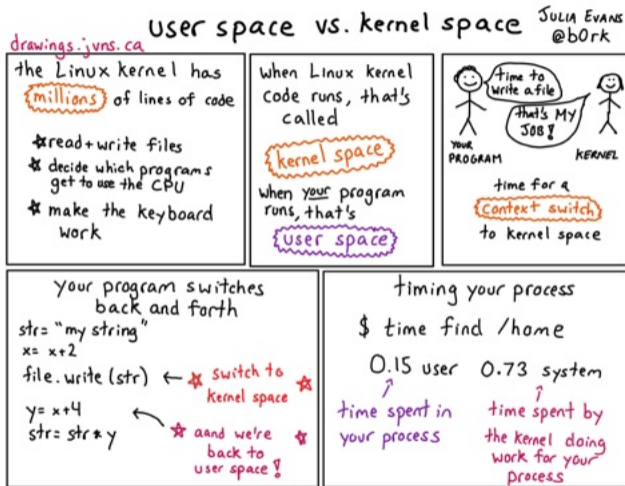 user space vs. kernel space
JULIA EVANS
@b0rk
drawings.jvns.ca
the Linux kernel has
millions of lines of code
★ read + write files
★ decide which programs
get to use the CPU
★ make the keyboard
work
when Linux kernel
code runs, that's
called
kernel space
when your program
runs, that's
user space
time to
write a file
that's MY
JOB!
YOUR
PROGRAM
KERNEL
time for a
context switch
to kernel space
your program switches
back and forth
str= "my string"
x= x+2
file.write (str) ← ★ switch to ★
kernel space
y= x+4
str= str * y
★ aand we're ★
back to
user space!
timing your process
$ time find /home
0.15 user 0.73 system
time spent in
your process
time spent by
the kernel doing
work for your
process